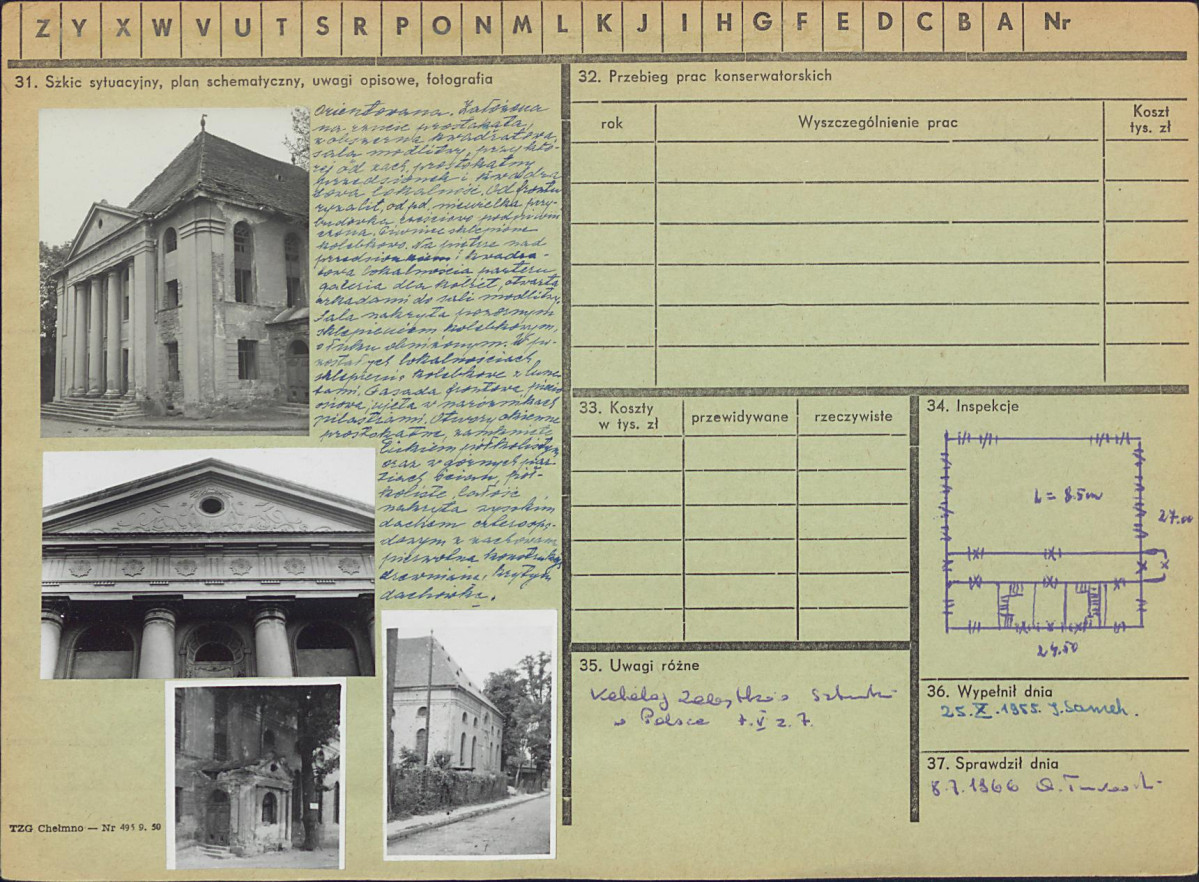 Z Y X W V U T S R P O N M L K J I H G F E D C B A Nr
31. Szkic sytuacyjny, plan schematyczny, uwagi opisowe, fotografia
Orientowana. Założona
na rzucie prostokąta,
z obszerną kwadratową
salą modlitw, przy któ-
rej od zach. prostokątny
przedsionek i kwadra-
towa lokalność. Od frontu
ryzalit, od pd. niewielka przy-
budówka. Częściowo podpiwni-
czona. Piwnice sklepione
kolebkowo. Na piętrze nad
przedsionkiem i kwadra-
tową lokalnością parteru
galeria dla kobiet, otwarta
arkadami do sali modlitw.
Sala nakryta pozornym
sklepieniem kolebkowym,
o łuku obniżonym. W po-
zostałych lokalnościach
sklepienia kolebkowe z lune-
tami. Fasada frontowa
ujęta w narożnikach
pilastrami. Otwory okienne
prostokątne, zamknięte
łukiem półkolistym
oraz w górnych par-
tiach ścian, pół-
koliste. Całość
nakryta wysokim
dachem czterospa-
dowym z zachowaną
pierwotną konstrukcją
drewnianą, kryty
dachówką.
TZG Chełmno — Nr 491 9. 50
32. Przebieg prac konserwatorskich
rok
Wyszczególnienie prac
Koszt
tys. zł
33. Koszty
w tys. zł
przewidywane
rzeczywiste
34. Inspekcje
L = 8.5m
27.00
24.50
35. Uwagi różne
Katalog Zabytków Sztuki
w Polsce t. V z. 7.
36. Wypełnił dnia
25. X. 1955. J. Samek.
37. Sprawdził dnia
8.7.1966